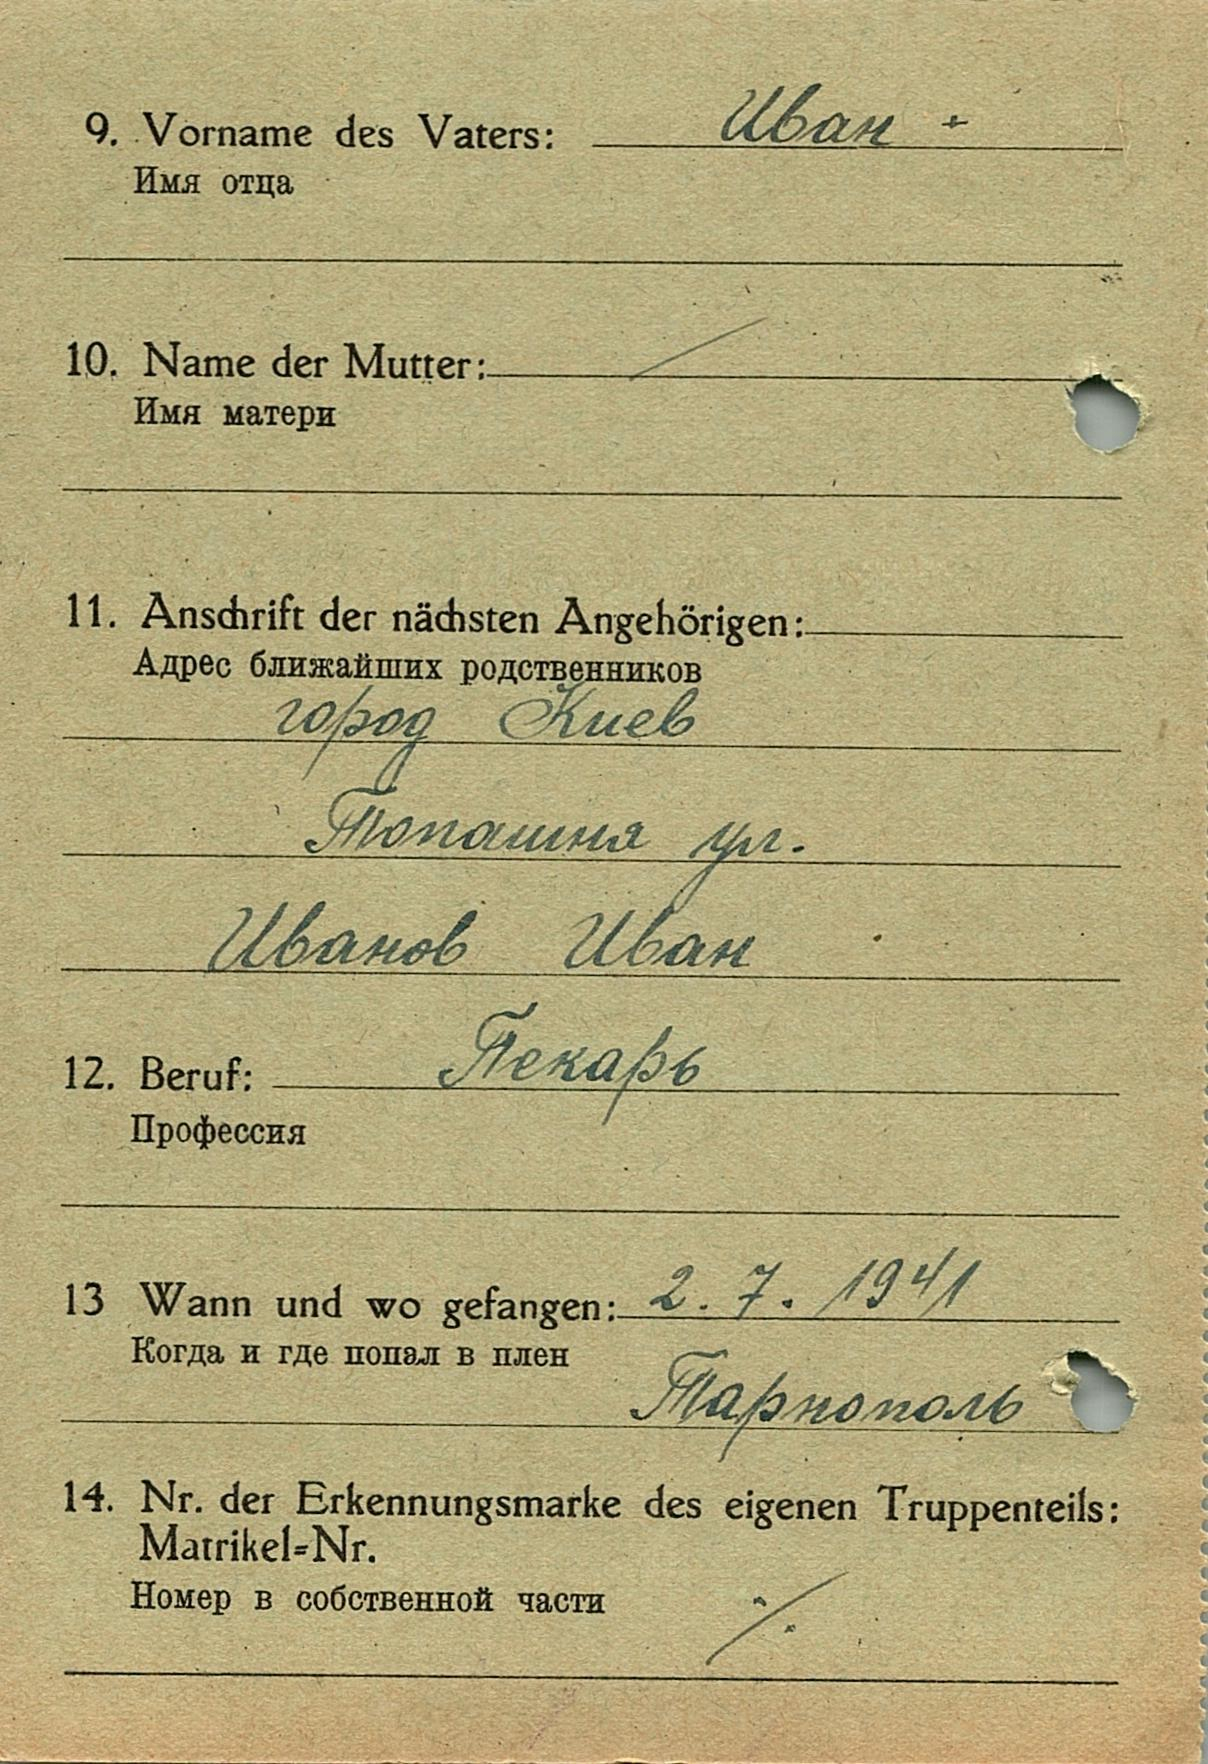 9. Vorname des Vaters: Иван +
Имя отца
10. Name der Mutter: /
Имя матери
11. Anschrift der nächsten Angehörigen:
Адрес ближайших родственников
город Киев
Топашня ул.
Иванов Иван
12. Beruf: Пекарь
Профессия
13 Wann und wo gefangen: 2. 7. 1941
Когда и где попал в плен
Тарнополь
14. Nr. der Erkennungsmarke des eigenen Truppenteils:
Matrikel=Nr.
Номер в собственной части ·/.